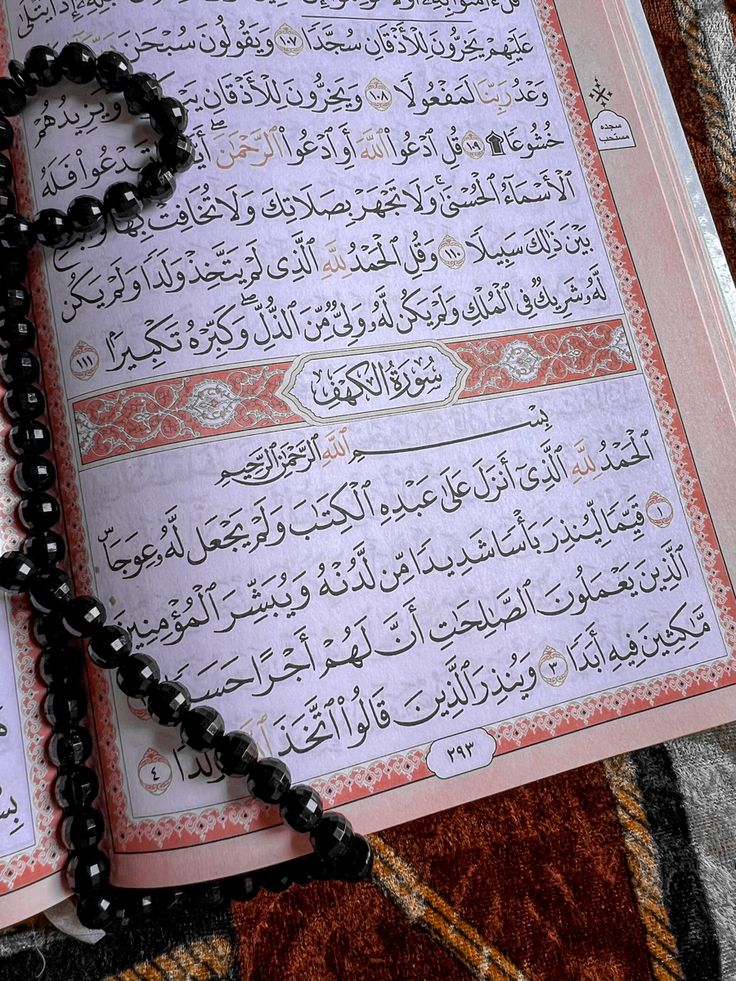 عَلَيْهِمْ يَخِرُّونَ لِلْأَذْقَانِ سُجَّدًا ١٠٧ وَيَقُولُونَ سُبْحَانَ
وَعْدُ رَبِّنَا لَمَفْعُولًا ١٠٨ وَيَخِرُّونَ لِلْأَذْقَانِ وَيَزِيدُهُمْ
خُشُوعًا ۩ ١٠٩ قُلِ ٱدْعُوا۟ ٱللَّهَ أَوِ ٱدْعُوا۟ ٱلرَّحْمَٰنَ ۖ تَدْعُوا۟ فَلَهُ
ٱلْأَسْمَآءُ ٱلْحُسْنَىٰ ۚ وَلَا تَجْهَرْ بِصَلَاتِكَ وَلَا تُخَافِتْ بِهَا
بَيْنَ ذَٰلِكَ سَبِيلًا ١١٠ وَقُلِ ٱلْحَمْدُ لِلَّهِ ٱلَّذِى لَمْ يَتَّخِذْ وَلَدًا وَلَمْ يَكُن
لَّهُۥ شَرِيكٌ فِى ٱلْمُلْكِ وَلَمْ يَكُن لَّهُۥ وَلِىٌّ مِّنَ ٱلذُّلِّ ۖ وَكَبِّرْهُ تَكْبِيرًۢا ١١١
سُورَةُ الكَهْفِ
بِسْمِ ٱللَّهِ ٱلرَّحْمَٰنِ ٱلرَّحِيمِ
ٱلْحَمْدُ لِلَّهِ ٱلَّذِىٓ أَنزَلَ عَلَىٰ عَبْدِهِ ٱلْكِتَٰبَ وَلَمْ يَجْعَل لَّهُۥ عِوَجَاۜ
١ قَيِّمًا لِّيُنذِرَ بَأْسًا شَدِيدًا مِّن لَّدُنْهُ وَيُبَشِّرَ ٱلْمُؤْمِنِينَ
ٱلَّذِينَ يَعْمَلُونَ ٱلصَّٰلِحَٰتِ أَنَّ لَهُمْ أَجْرًا
مَّٰكِثِينَ فِيهِ أَبَدًا ٣ وَيُنذِرَ ٱلَّذِينَ قَالُوا۟ ٱتَّخَذَ وَلَدًا ٤
٢٩٣
سجده
مستحب